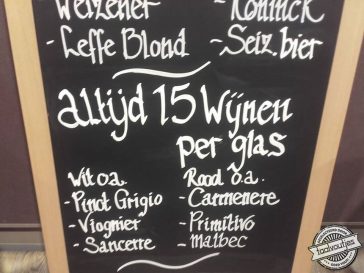 Weizener - Koninck
- Leffe Blond - Seiz. bier
altijd 15 Wijnen
per glas
Wit o.a. Rood o.a.
- Pinot Grigio - Carmenere
- Viognier - Primitivo
- Sancerre - Malbec
taalvoutjes